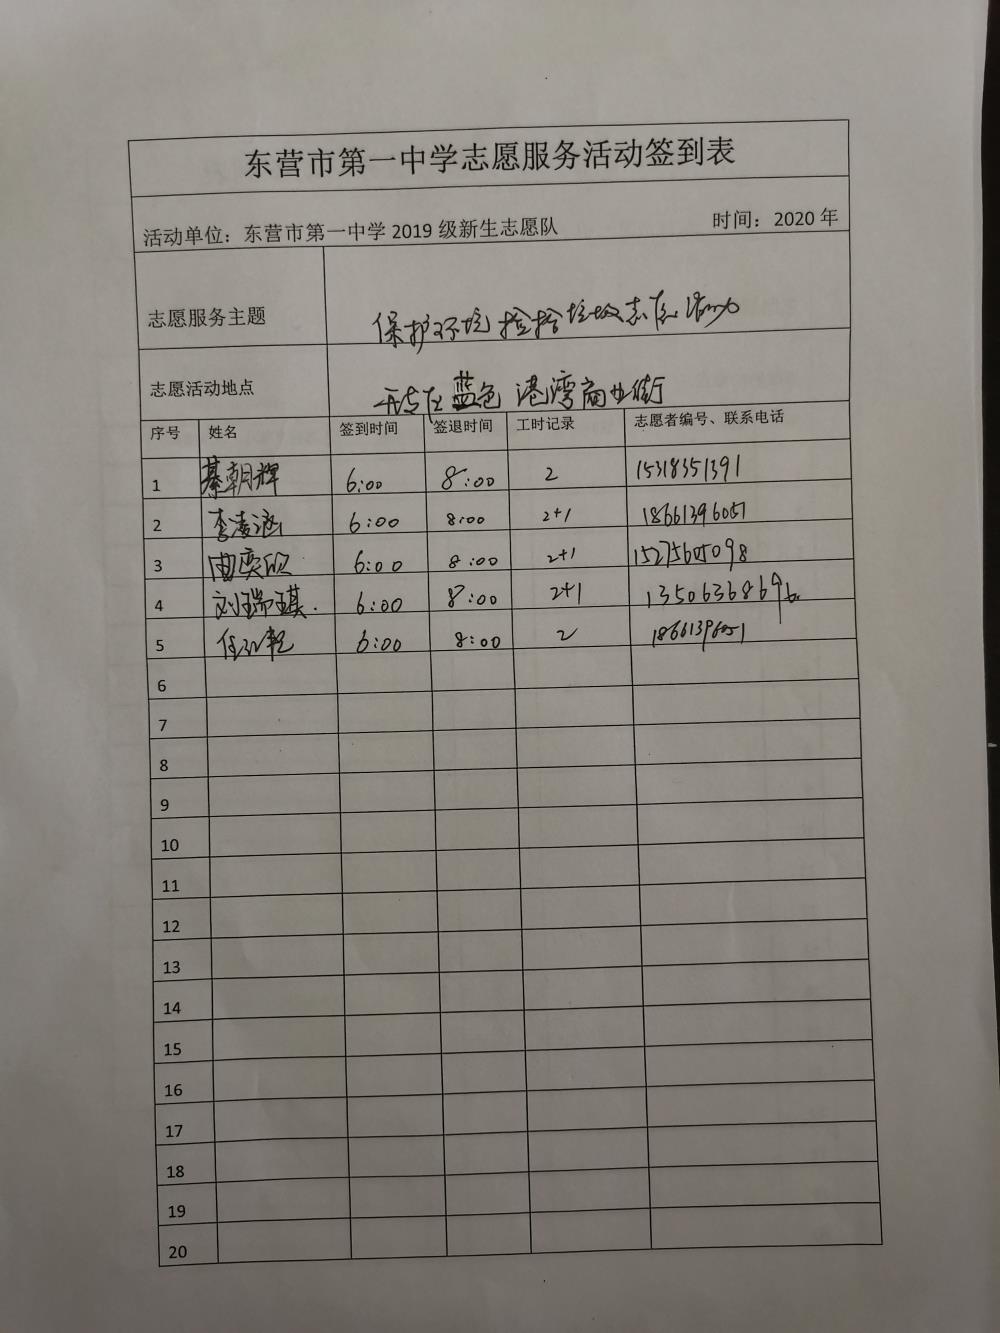 东营市第一中学志愿服务活动签到表
活动单位：东营市第一中学 2019 级新生志愿队 时间：2020 年
志愿服务主题 保护环境 捡拾垃圾志愿活动
志愿活动地点 开发区蓝色港湾商业街
序号 姓名 签到时间 签退时间 工时记录 志愿者编号、联系电话
1 綦朝辉 6:00 8:00 2 15318351391
2 李凌涵 6:00 8:00 2+1 18661396051
3 由奕欣 6:00 8:00 2+1 15275605098
4 刘瑞琪 6:00 8:00 2+1
5 6:00 8:00 2 18661396051
6
7
8
9
10
11
12
13
14
15
16
17
18
19
20